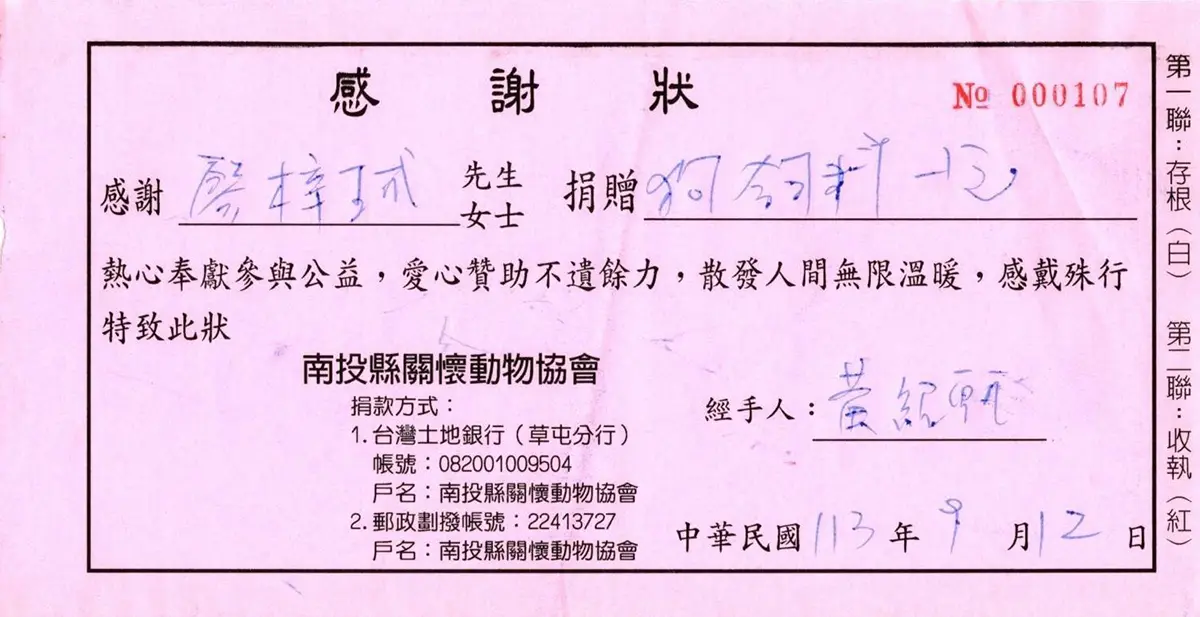 感謝狀
№ 000107
感謝 梓 先生 女士 捐贈 狗飼料一包
熱心奉獻參與公益，愛心贊助不遺餘力，散發人間無限溫暖，感戴殊行
特致此狀
南投縣關懷動物協會
捐款方式：
1. 台灣土地銀行（草屯分行）
帳號：082001009504
戶名：南投縣關懷動物協會
2. 郵政劃撥帳號：22413727
戶名：南投縣關懷動物協會
經手人：黃
中華民國 113 年 9 月 12 日
第一聯：存根（白） 第二聯：收執（紅）